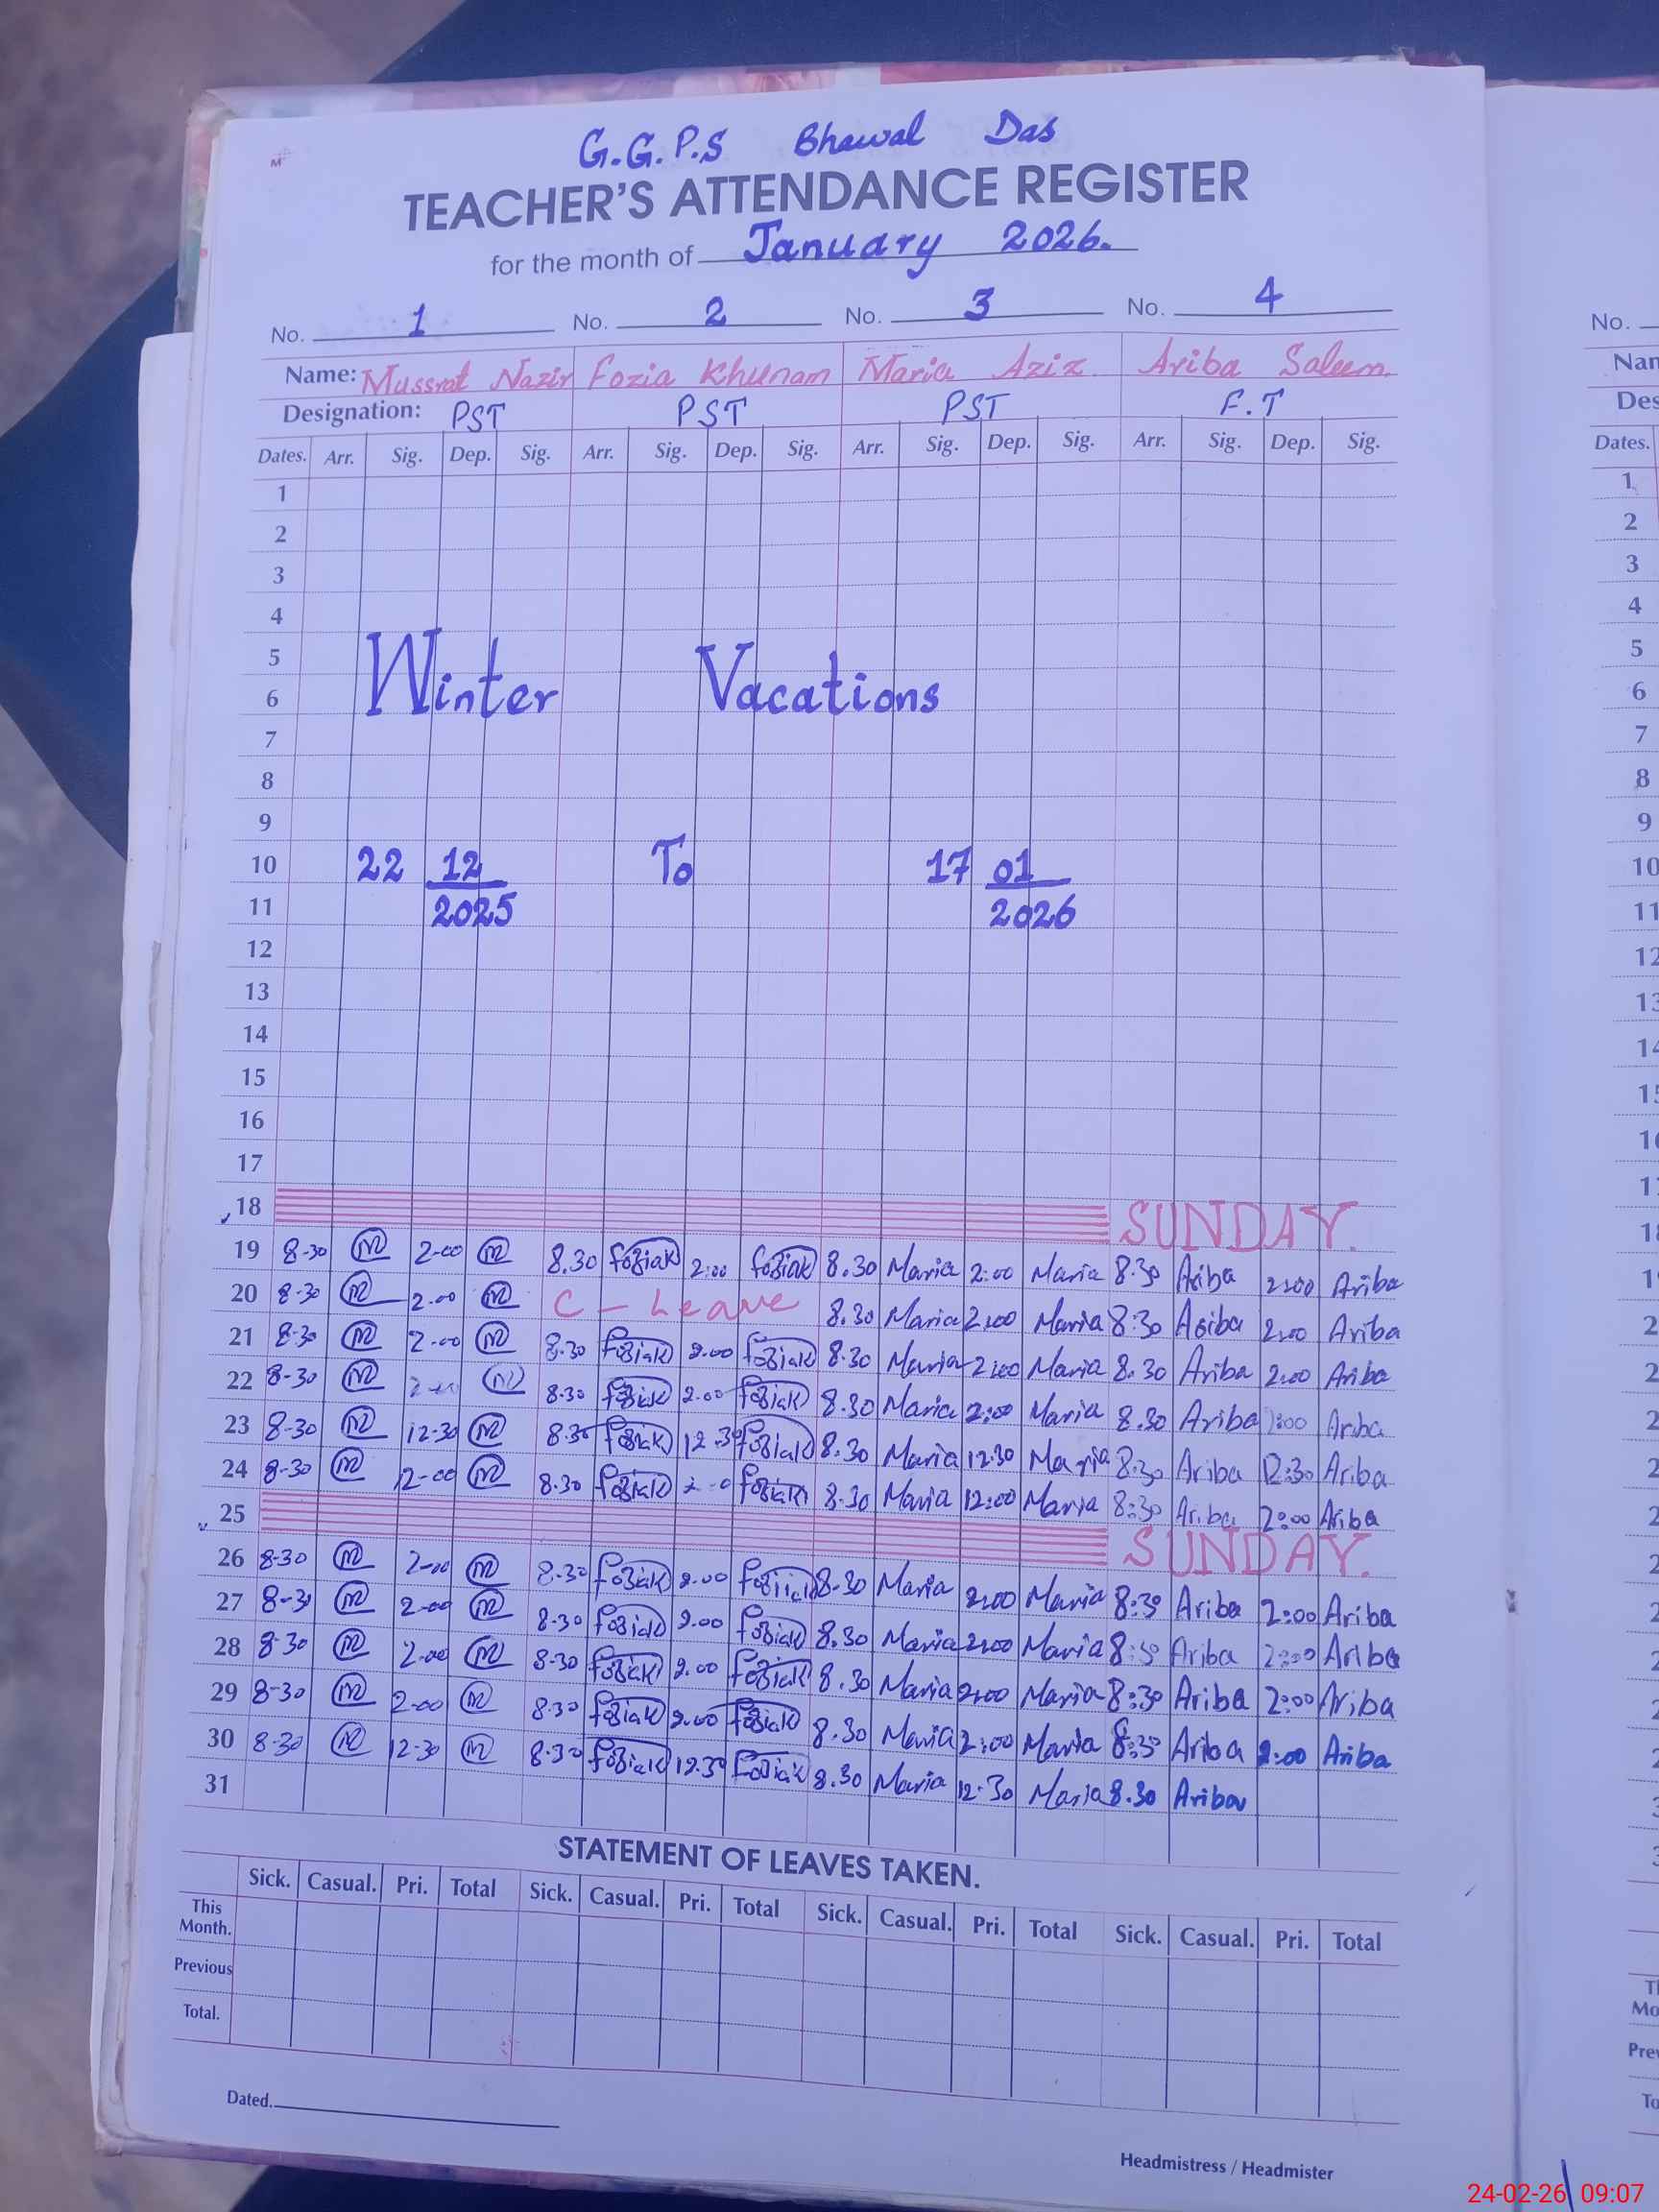 G.G.P.S Bhawal Das
TEACHER'S ATTENDANCE REGISTER
for the month of January 2026.
No. 1 No. 2 No. 3 No. 4
Name: Mussrat Nazir Fozia Khunam Maria Aziz Ariba Saleem.
Designation: PST PST PST F.T
Dates. Arr. Sig. Dep. Sig. Arr. Sig. Dep. Sig. Arr. Sig. Dep. Sig. Arr. Sig. Dep. Sig.
1
2
3
4
5
6 Winter Vacations
7
8
9
10 22 12 To 17 01
11 2025 2026
12
13
14
15
16
17
18 SUNDAY.
19 8-30 2-00 8.30 foziak 2:00 foziak 8.30 Maria 2:00 Maria 8:30 Ariba 2:00 Ariba
20 8-30 2.00 C - Leave 8.30 Maria 2:00 Maria 8:30 Ariba 2:00 Ariba
21 8-30 2-00 8.30 foziak 2.00 foziak 8.30 Maria 2:00 Maria 8.30 Ariba 2:00 Ariba
22 8-30 8.30 foziak 2.00 foziak 8.30 Maria 2:00 Maria 8.30 Ariba Ariba
23 8-30 12-30 8.30 foziak 12.30 foziak 8.30 Maria 12:30 Maria 8:30 Ariba 12:30 Ariba
24 8-30 8.30 foziak foziak 8.30 Maria 12:00 Maria 8:30 Ariba 2:00 Ariba
25 SUNDAY.
26 8-30 2-00 8.30 foziak 2.00 foziak 8-30 Maria 2:00 Maria 8:30 Ariba 2:00 Ariba
27 8-30 2-00 8.30 foziak 2.00 foziak 8.30 Maria 2:00 Maria 8:30 Ariba 2:00 Ariba
28 8-30 2-00 8-30 foziak 2.00 foziak 8.30 Maria 2:00 Maria 8:30 Ariba 2:00 Ariba
29 8-30 2-00 8.30 foziak 2.00 foziak 8.30 Maria 2:00 Maria 8:30 Ariba 2:00 Ariba
30 8-30 12-30 8.30 foziak 12.30 foziak 8.30 Maria 12:30 Maria 8.30 Ariba
31
STATEMENT OF LEAVES TAKEN.
Sick. Casual. Pri. Total Sick. Casual. Pri. Total Sick. Casual. Pri. Total Sick. Casual. Pri. Total
This Month.
Previous
Total.
Dated.
Headmistress / Headmister
No.
Dates.
1
2
3
4
5
6
7
8
9
10
24-02-26 09:07